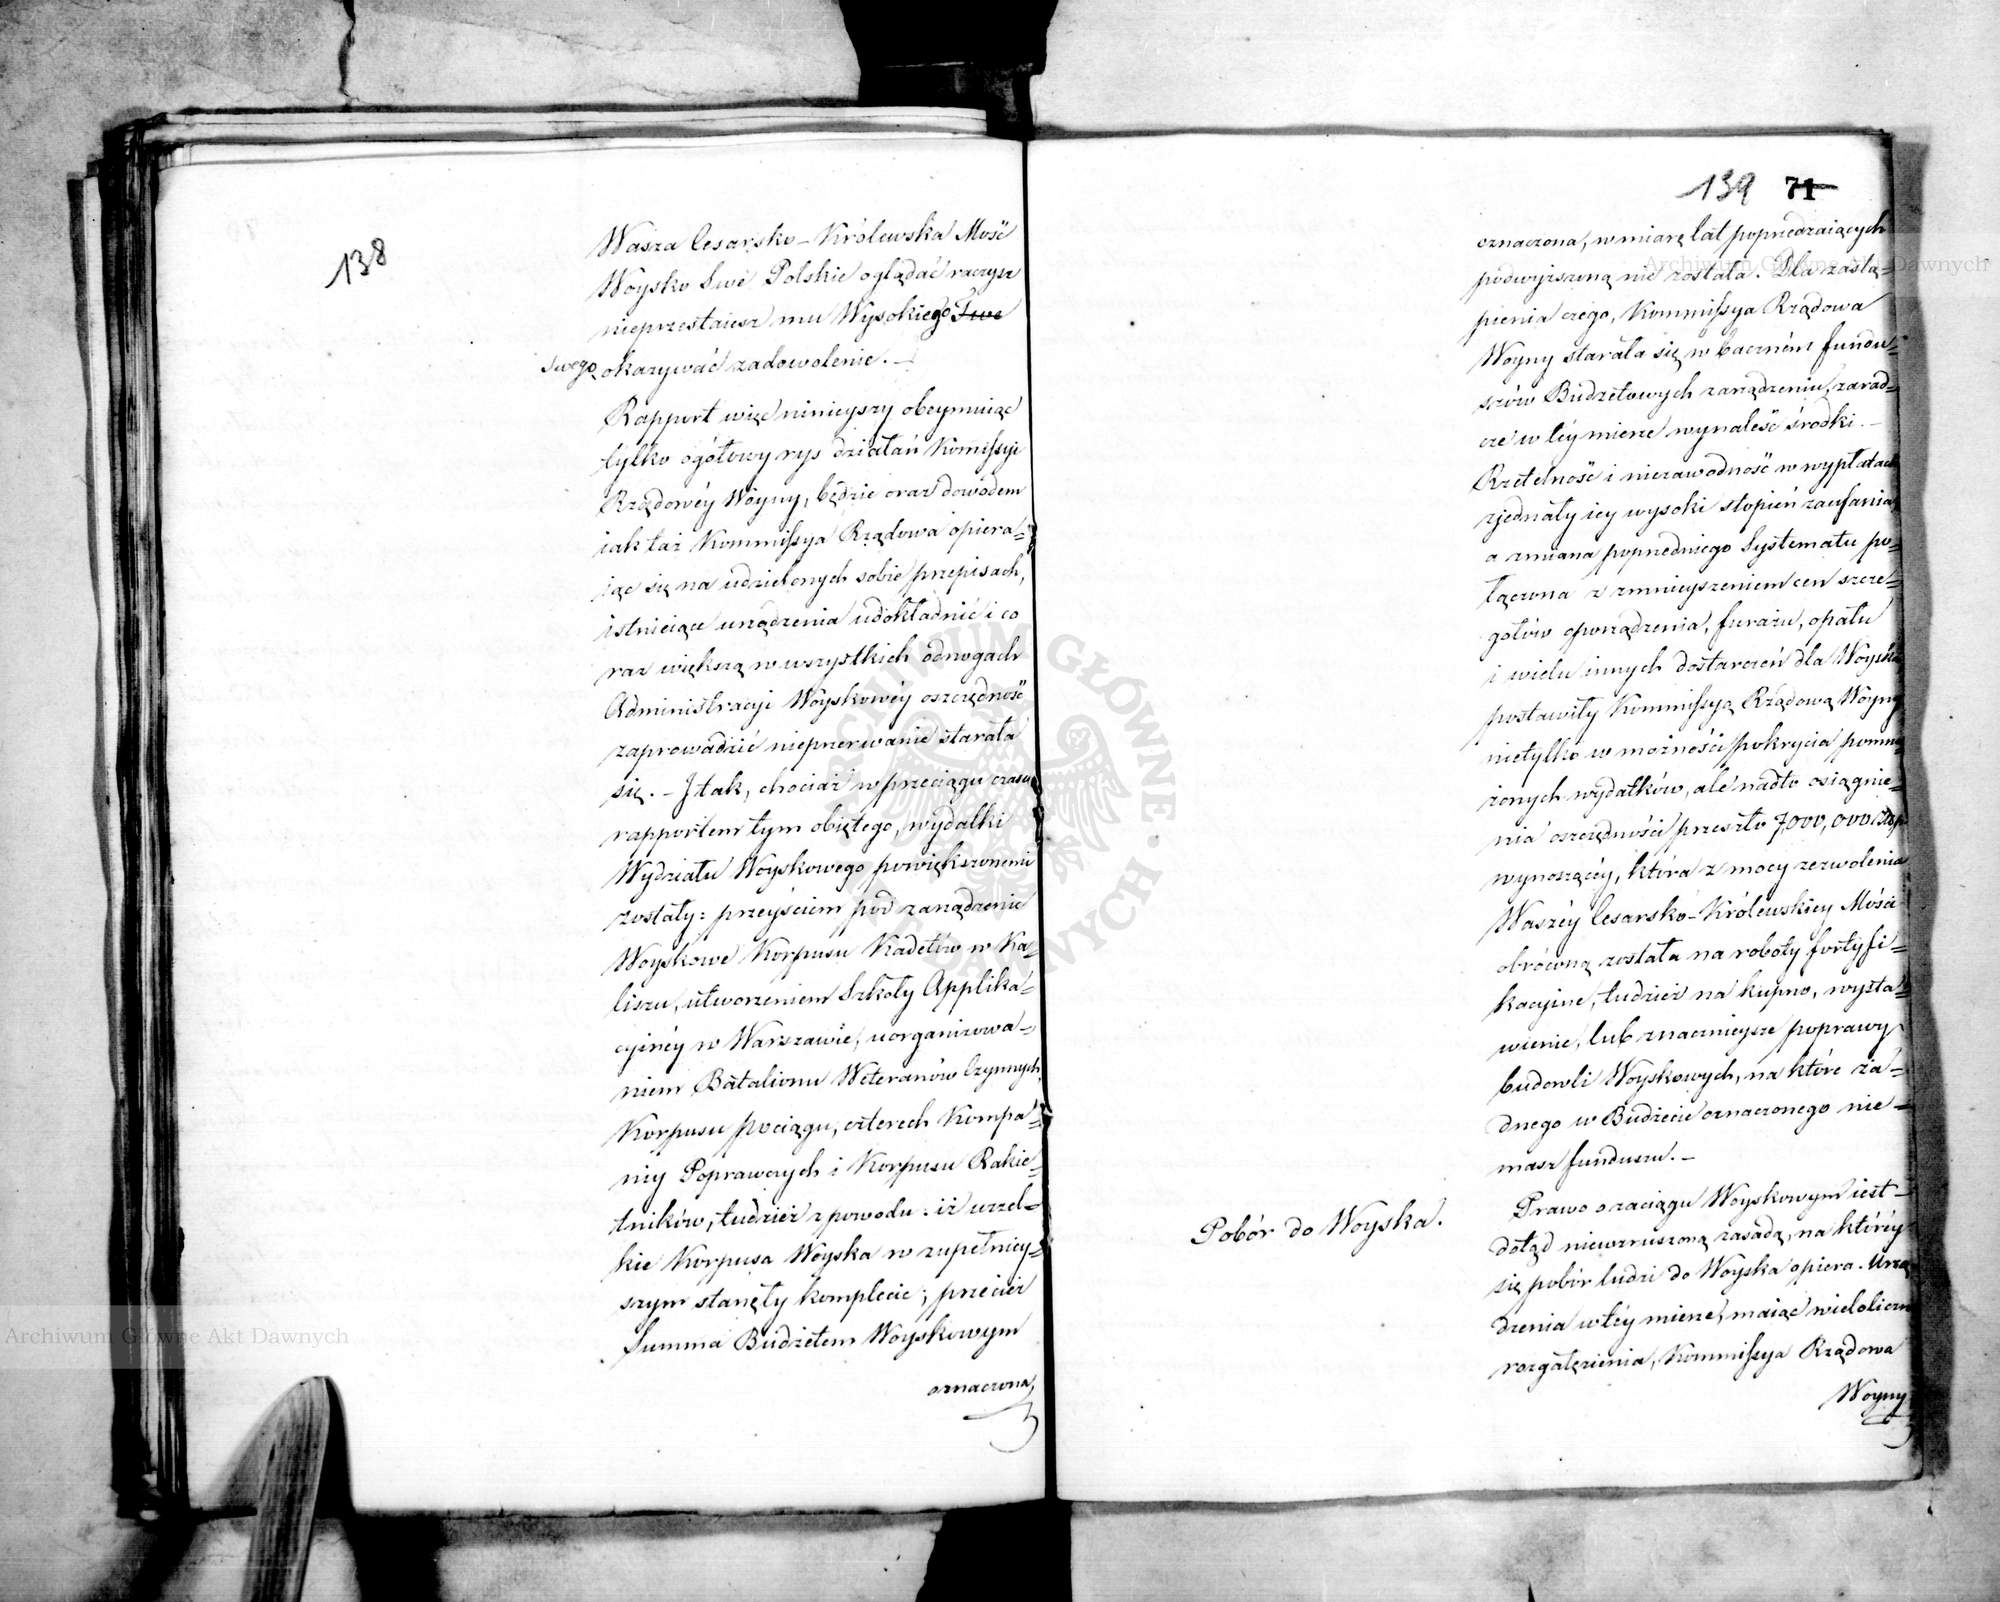 138
Wasza Cesarsko-Królewska Mość
Woysko Swe Polskie oglądać raczysz
nieprzestaiesz mu Wysokiego Swe
swego okazywać zadowolenie. –
Rapport więc ninieyszy obeymuiąc
tylko ogółowy rys działań Kommissyi
Rządowéy Woyny, będzie oraz dowodem
iak taż Kommissya Rządowa opiera=
iąc się na udzielonych sobie przepisach,
istnieiące urządzenia udokładnić i co
raz większą w wszystkich odnogach
Administracyi Woyskowéy oszczędność
zaprowadzić nieprzerwanie starała
się. – I tak, chociaż w przeciągu czasu
rapportem tym obiętego, wydatki
Wydziału Woyskowego powiększonemi
zostały: przeyściem pod zarządzenie
Woyskowe Korpusu Kadetów w Ka=
liszu, utworzeniem Szkoły Applika=
cyinéy w Warszawie, uorganizowa=
niem Batalionu Weteranów Czynnych,
Korpusu pociągu, czterech Kompa=
niy Poprawczych i Korpusu Rakie=
tników, tudzież z powodu: iż wszel=
kie Korpusa Woyska w zupełniey=
szym stanęły komplecie; przecież
Summa Budżetem Woyskowym
oznaczona,
139 71
oznaczona, w miarę lat poprzedzaiących
podwyższoną nie została. Dla zastą=
pienia czego, Kommissya Rządowa
Woyny starała się w baczném fundu=
szów Budżetowych zarządzeniu, zarad=
cze w téy mierze wynaleść środki. –
Rzetelność i niezawodność w wypłatach
zjednały iey wysoki stopień zaufania,
a zmiana poprzedniego Systematu po=
łączona z zmnieyszeniem cen szcze=
gołów oporządzenia, furażu, opału
i wielu innych dostarczeń dla Woyska
postawiły Kommissyą Rządową Woyny
nietylko w możności pokrycia pomno
żonych wydatków, ale nadto osiągnie=
nia oszczędności przeszło 7,000,000 Złp
wynoszącéy, która z mocy zezwolenia
Waszéy Cesarsko-Królewskiey Mości
obróconą została na roboty fortyfi=
kacyine, tudzież na kupno, wysta=
wienie, lub znacznieysze poprawy
budowli Woyskowych, na które ża=
dnego w Budżecie oznaczonego nie=
masz funduszu. –
Pobór do Woyska.
Prawo o zaciągu Woyskowym iest
dotąd niewzruszoną zasadą, na któréy
się pobór ludzi do Woyska opiera. Urzą
dzenia w téy mierze, maiąc wieloliczn
rozgałęzienia, Kommissya Rządowa
Woyny
Archiwum Główne Akt Dawnych
Archiwum Główne Akt Dawnych
ARCHIWUM GŁÓWNE AKT DAWNYCH